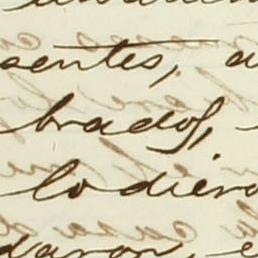 sentes, a
brados,
lo diero
daron, e